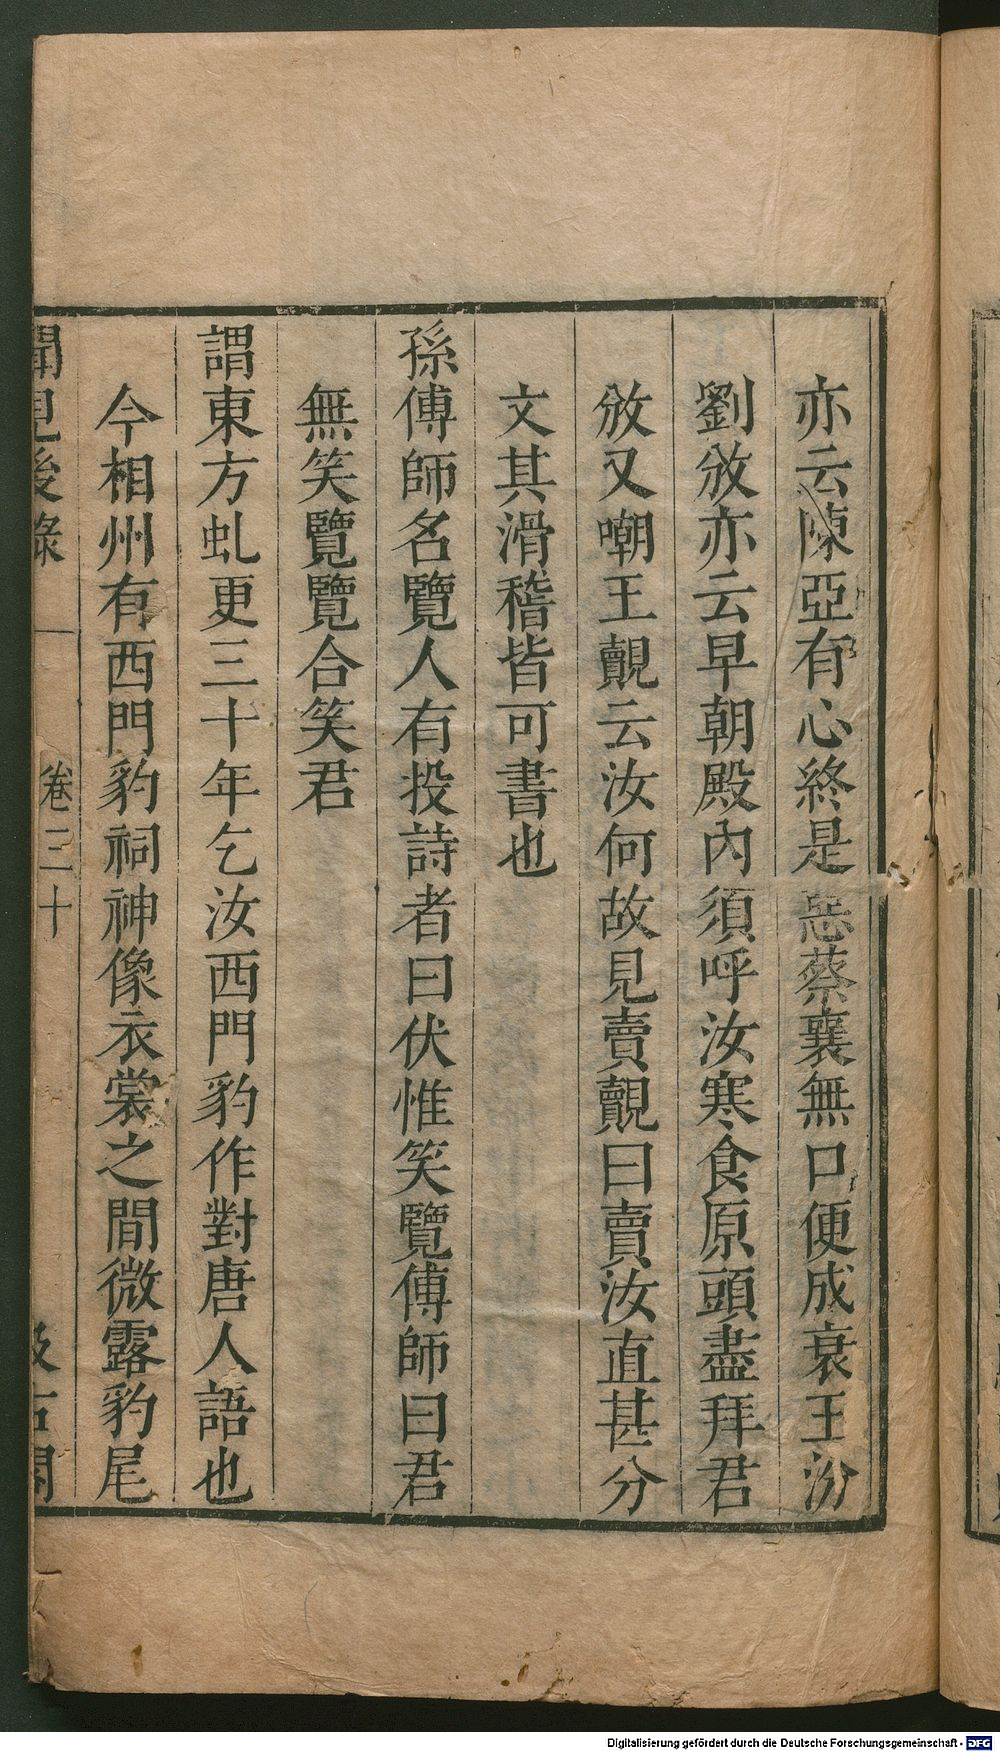 亦云陳亞有心終是惡蔡襄無口便成衰王汾
劉攽亦云早朝殿內須呼汝寒食原頭盡拜君
攽又嘲王覿云汝何故見賣覿曰賣汝直甚分
文其滑稽皆可書也
孫傅師名覽人有投詩者曰伏惟笑覽傅師曰君
無笑覽覽合笑君
謂東方虬更三十年乞汝西門豹作對唐人語也
今相州有西門豹祠神像衣裳之間微露豹尾
聞見後錄 卷三十 汲古閣
Digitalisierung gefördert durch die Deutsche Forschungsgemeinschaft - DFG